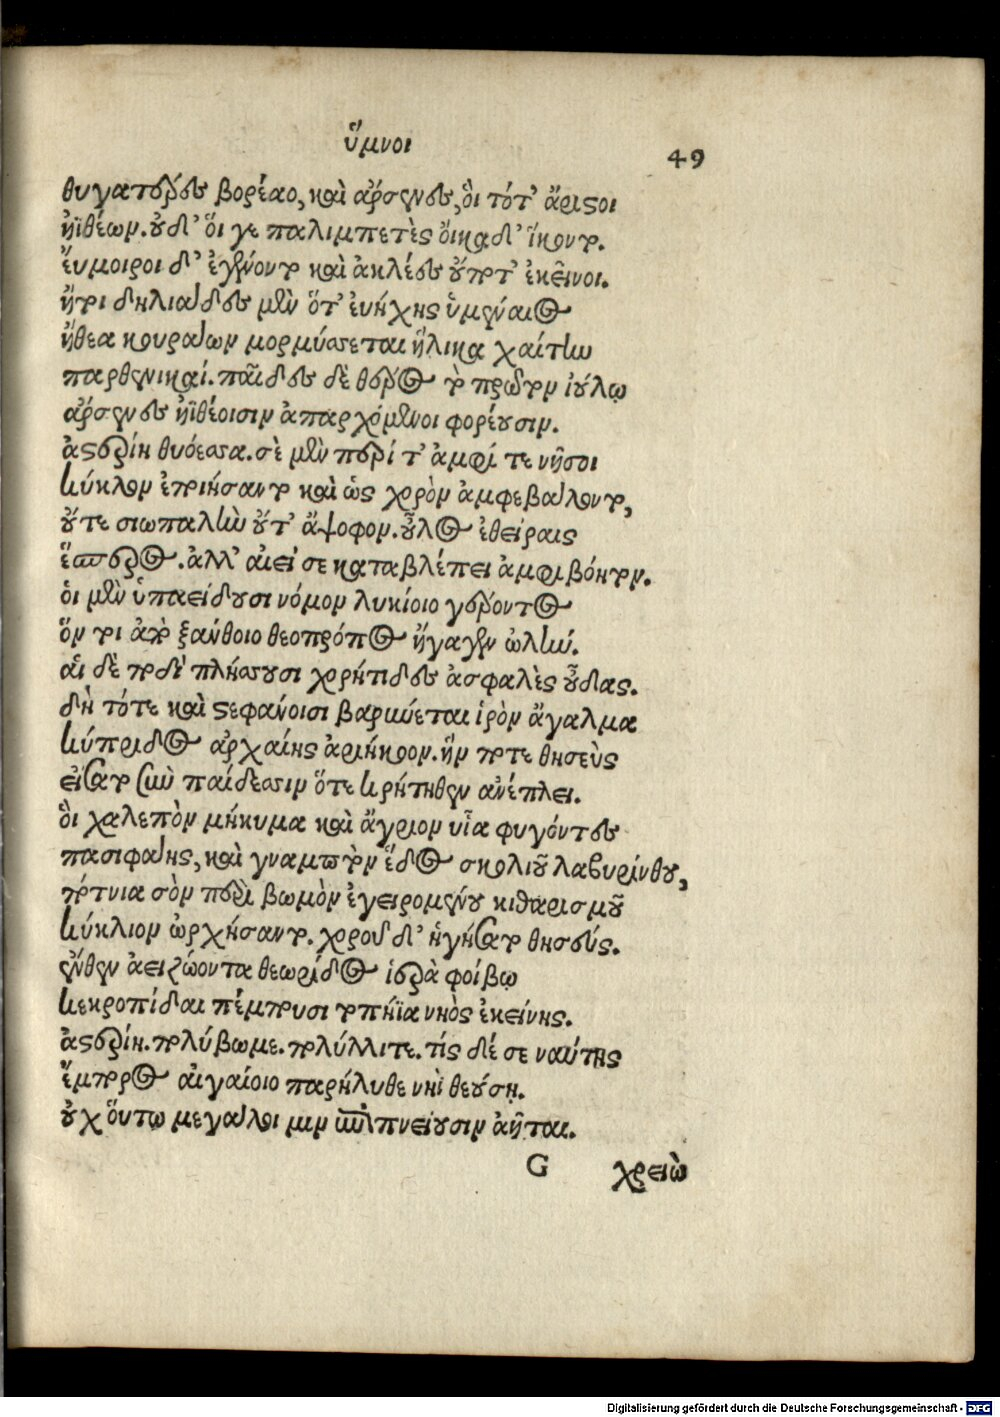 ὕμνοι
49
θυγατέρες βορέαο, καὶ ἄρσενες, ὃι τότ' ἄριστοι
ἠϊθέων. ὐδ' ὅι γε παλιμπετὲς ὄικαδ' ἵκοντο.
ἔυμοιροι δ' ἐγένοντο καὶ ἀκλέες ὔποτ' ἐκεῖνοι.
ἤτοι δηλιάδες μὲν ὅτ' ἐυήχης ὑμέναιος
ἤθεα κουράων μορμύσσεται ἥλικα χαίτην
παρθενικαί. παῖδες δὲ θέρος τὸ πρῶτον ἰούλῳ
ἄρσενες ἠϊθέοισιν ἀπαρχόμενοι φορέουσιν.
ἀστερίη θυόεσσα. σὲ μὲν περί τ' ἀμφί τε νῆσοι
κύκλον ἐποιήσαντο καὶ ὡς χορὸν ἀμφεβάλοντο,
οὔτε σιωπαλὴν οὔτ' ἄψοφον. οὖλος ἐθείραις
ἕσπερος. ἀλλ' αἰεί σε καταβλέπει ἀμφιβόητον.
ὁι μὲν ὑπαείδουσι νόμον λυκίοιο γέροντος
ὅν τοι ἀπὸ ξάνθοιο θεοπρόπος ἤγαγεν ὠλήν.
αἱ δὲ ποδὶ πλήσσουσι χορήτιδες ἀσφαλὲς οὖδας.
δὴ τότε καὶ στεφάνοισι βαρύνεται ἱρὸν ἄγαλμα
κύπριδος ἀρχαίης ἀριήκοον. ἥν ποτε θησεὺς
εἵσατο σὺν παίδεσσιν ὅτε κρήτηθεν ἀνέπλει.
ὃι χαλεπὸν μήκυμα καὶ ἄγριον υἷα φυγόντες
πασιφάης, καὶ γναμπτὸν ἕδος σκολιοῦ λαβυρίνθου,
πότνια σὸν περὶ βωμὸν ἐγειρομένου κιθαρισμοῦ
κύκλιον ὠρχήσαντο. χοροῦ δ' ἡγήσατο θησεύς.
ἔνθεν ἀειζώοντα θεωρίδος ἱερὰ φοίβῳ
κεκροπίδαι πέμπουσι τοπήϊα νηὸς ἐκείνης.
ἀστερίη. πολύβωμε. πολύλλιτε. τίς δέ σε ναύτης
ἔμπορος αἰγαίοιο παρήλυθε νηῒ θεούσῃ.
οὐχ ὅυτω μεγάλοι μιν ἐπιπνείουσιν ἀῆται.
G χρειὼ
Digitalisierung gefördert durch die Deutsche Forschungsgemeinschaft - DFG